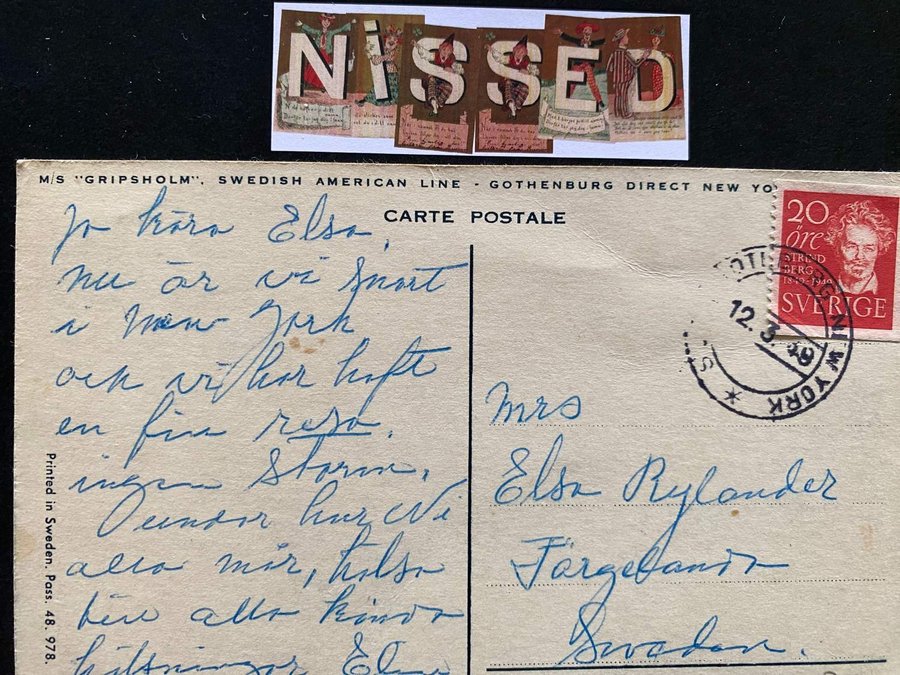 NiSSED
M/S "GRIPSHOLM", SWEDISH AMERICAN LINE - GOTHENBURG DIRECT NEW YO
CARTE POSTALE
20
öre
STRIND
BERG
1849-1949
SVERIGE
12.3.49
NEW YORK
Ja kära Elsa,
nu är vi snart
i New York
och vi har haft
en fin resa,
ingen storm.
Undar hur Ni
alla mår, halsa
till alla kända
hälsningar Elna
Mrs
Elsa Rylander
Färgelanda
Sweden.
Printed in Sweden. Pass. 48. 978.